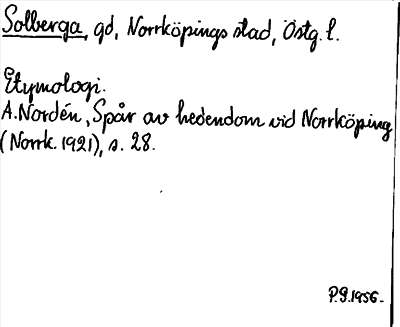 Solberga, gd, Norrköpings stad, Östg. l.
Etymologi.
A. Nordén, Spår av hedendom vid Norrköping
(Norrk. 1921), s. 28.
P.G. 1956.